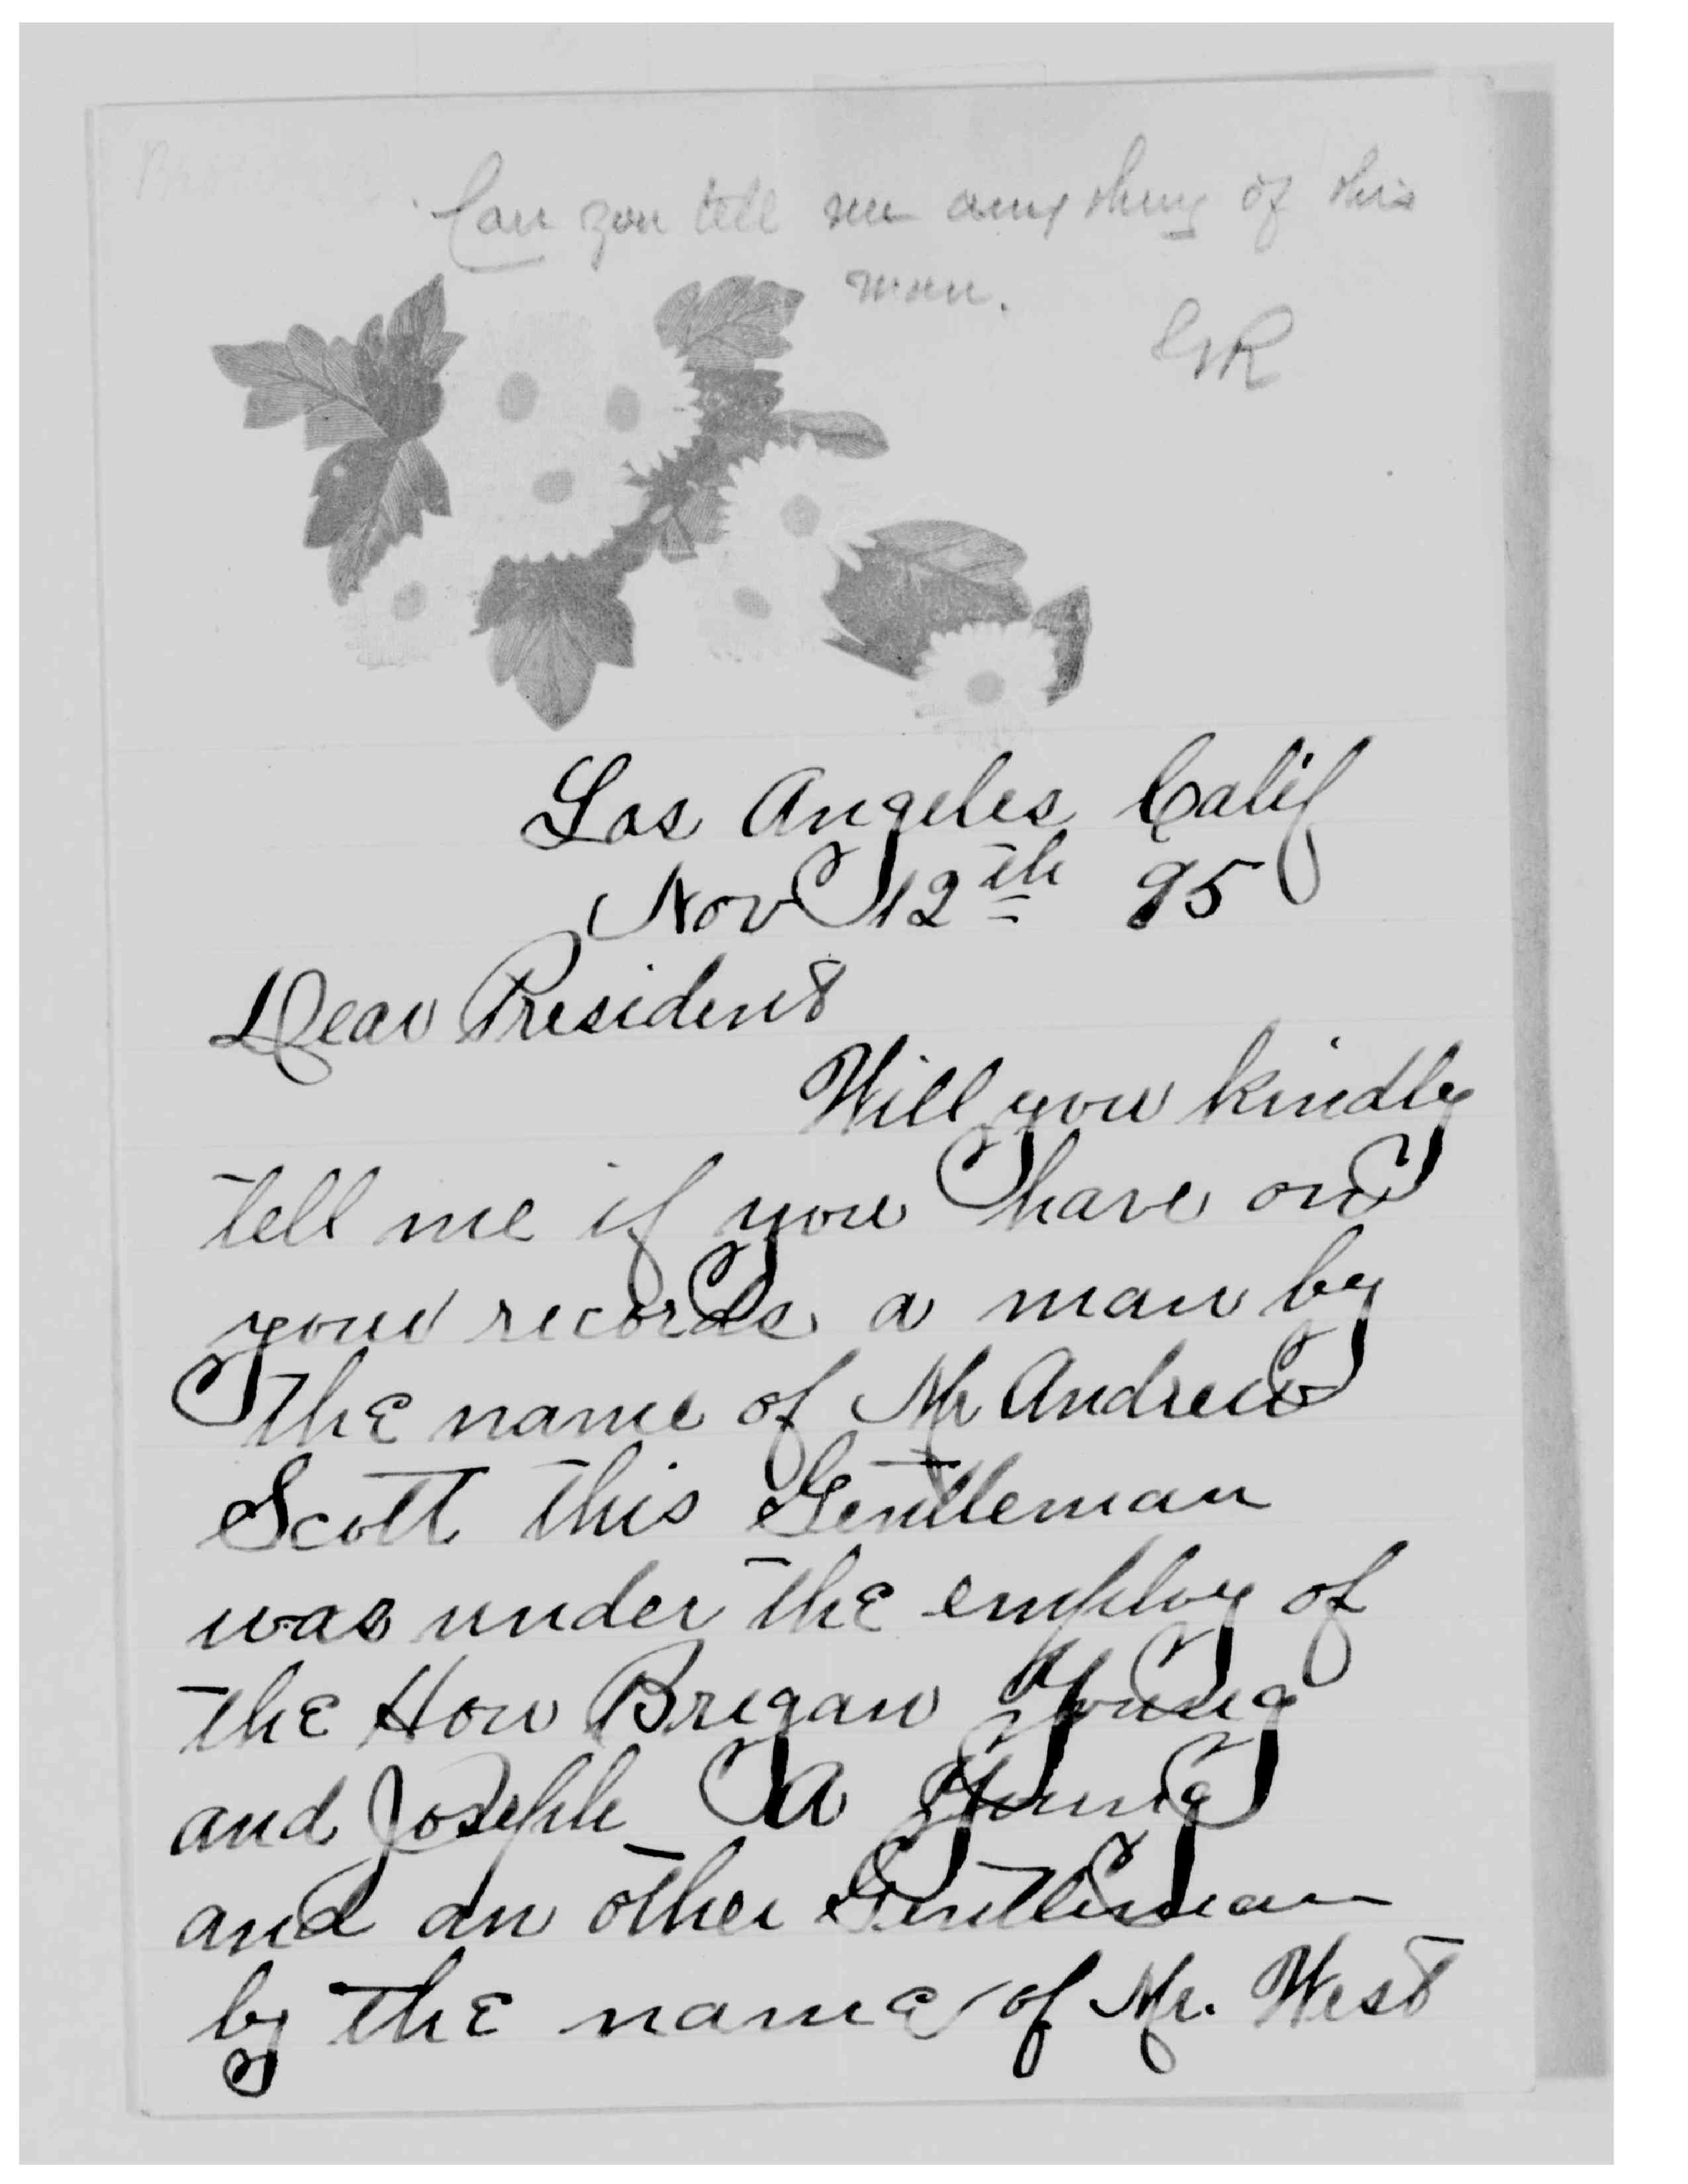 Can you tell me any thing of this
man.
GR
Los Angeles Calif
Nov 12th 95
Dear President
Will you kindly
tell me if you have on
your records a man by
the name of Mr Andrew
Scott this Gentleman
was under the employ of
the Hon Brigan Young
and Joseph A Young
and an other Gentleman
by the name of Mr. West